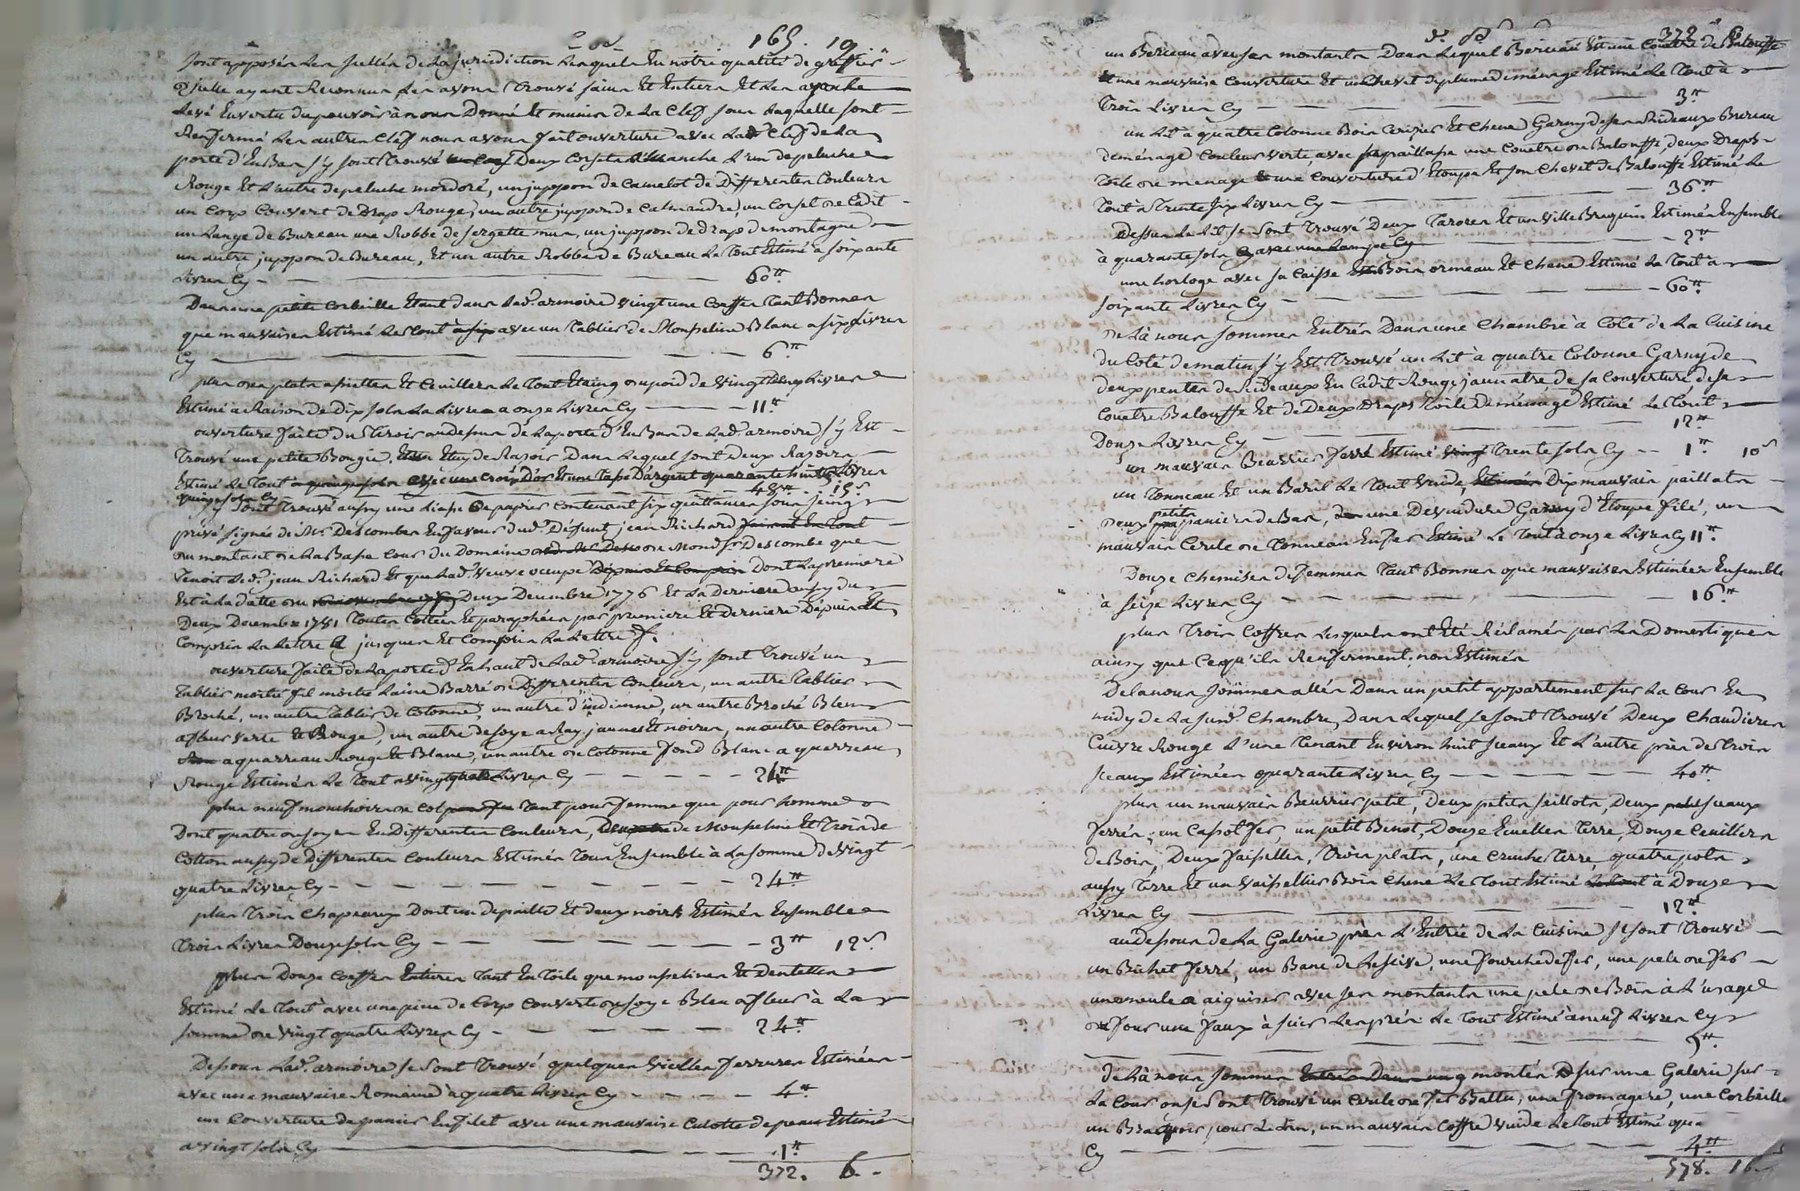 165. 19
sont apposés les scellés de la jurisdiction lesquels en notre qualité de greffier
ayant Reconnus les avons trouvé sains Et Entiers Et les ayants
levé En vertu du pouvoir à nous Donné Et munis de la Clef sous laquelle sont
Renfermé les autres Clefs nous avons fait ouverture avec lad.e Clef de la
porte d'En Bas s'y sont trouvé Deux Corselets manche l'un de peluche
Rouge Et l'autre de peluche mordoré, un juppon de Camelot de Differentes Couleurs
un Corps Couvert de Drap Rouge, un autre juppon de Calmandre, un Corset de Cadit
un Lange de Bureau une Robbe de sergette mur, un juppon de drap de montagne
un autre juppon de Bureau, Et un autre Robbe de Bureau le Tout Estimé a soixante
Livres Cy 60tt
Dans une petite Corbeille Etant dans lad.e armoire vingt une Coeffes tant Bonnes
que mauvaises Estimé le Tout avec un Tablier de Mousseline Blanc a six Livres
Cy 6tt
plus des plats assiettes Et Cuilliers le Tout Etaing du poid de vingt Deux Livres
Estimé à Raison de Dix sols la Livre a onze Livres Cy 11tt
ouverture faite du tiroir au dessus de la porte d'En Bas de lad.e armoire s'y Est
Trouvé une petite Bougie, Etuy de Rasoir Dans lequel sont Deux Rasoirs
Estimé le Tout avec une Croix D'or Et une Tasse D'argent quarante huit Livres
quinze sols Cy 48tt. 15s
s'y sont trouvé aussy une Liasse de papier contenant six quittances sous seing
privé signée de Mr Descombes En faveur dud. Défunt jean Richard
du montant de la Basse Cour du Domaine de Mond.sr Descombe que
Tenoit led.t jean Richard Et que lad.e veuve occupe Dont la premiere
Est à la datte du Deux Decembre 1776 Et la derniere aussy du
Deux Decembre 1781 Toutes Cottées Et paraphées par premiere Et derniere Depuis Et
Compris la lettre a jusques Et Compris la Lettre f.
ouverture faite de la porte d'En haut de lad.e armoire s'y sont Trouvé un
Tablier moitié fil moitié laine Barré de Differentes Couleurs, un autre Tablier
Broché, un autre Tablier de Cotonne, un autre d'indienne, un autre Broché Bleu
a fleur verte Et Rouge, un autre de soye a Ray jaunes Et noires, un autre Cotonne
a quarreau Rouge Et Blanc, un autre de Cotonne fond Blanc a quarreau
Rouge Estimés le Tout a vingt quatre Livres Cy 24tt
plus neuf mouchoirs de Col tant pour femme que pour homme
Dont quatre en soyes En Differentes Couleurs, Deux de Mousseline Et Trois de
Cotton aussy de differentes Couleurs Estimés Tous Ensemble à la somme de vingt
quatre Livres Cy 24tt.
plus Trois Chapeaux Dont un de paille Et deux noirs Estimés Ensemble
Trois Livres Douze sols Cy 3tt 12s
plus Douze Coeffes Entieres Tant En Toile que mousselines Et Dentelles
Estimé le Tout avec une piece de Corps Couvert de soye Bleu a fleur à la
somme de vingt quatre Livres Cy 24tt.
Dessous lad.e armoire se sont Trouvé quelques vieilles ferrures Estimées
avec une mauvaise Romaine à quatre Livres Cy 4tt
une Couverture de panier En filet avec une mauvaise Culotte de peau Estimé
a vingt sols Cy 1tt
372. 6.
372 6
un Berceau avec ses montants Dans lequel Berceau Est une Couetre de Balouffe
Et une mauvaise Couverture Et un Chevet de plume de ménage Estimé le Tout à
Trois Livres Cy 3tt
un Lit à quatre Colonne Bois Cerisier Et Chene Garny de ses Rideaux Bureau
de ménage Couleur verte, avec sa paillasse une Couetre de Balouffe, deux Draps
Toile de menage une Couverture d'Etoupe Et son Chevet de Balouffe Estimé le
Tout à Trente six Livres Cy 36tt
Dessus le Lit se sont Trouvé Deux Tarores Et un ville Brequin Estimés Ensemble
à quarante sols avec une Lampe Cy 2tt
une horloge avec sa Caisse Bois ormeau Et Chene Estimé le Tout à
soixante Livres Cy 60tt.
De là nous sommes Entrés Dans une Chambre à Coté de la Cuisine
du Coté de matin s'y Est Trouvé un Lit à quatre Colonne Garny de
deux pentes de Rideaux En Cadit Rouge jaunatre, de sa Couverture, de sa
Couetre Balouffe Et de Deux Draps Toile de ménage Estimé le Tout
Douze Livres Cy 12tt
un mauvais Beurrier ferré Estimé Trente sols Cy 1tt 10s
un Tonneau Et un Baril le Tout vuide, Dix mauvais paillats
Deux petits paniers de Bas, une Devuidure Garny d'Etoupe filé, un
mauvais Cercle de Tonneau En fer Estimé le Tout à onze Livres Cy 11tt.
Douze Chemises de femmes Tant Bonnes que mauvaises Estimées Ensemble
à seize Livres Cy 16tt
plus Trois Coffres lesquels ont Eté Réclamés par les Domestiques
ainsy que Ce qu'ils Renferment. non Estimés
De la nous sommes allés Dans un petit appartement sur la Cour En
midy de la sus.e Chambre, Dans lequel se sont Trouvé Deux Chaudieres
Cuivre Rouge l'une Tenant Environ huit sceaux Et l'autre près de Trois
sceaux Estimées quarante Livres Cy 40tt
plus un mauvais Beurrier petit, Deux petits seillots, Deux sceaux
ferrés, un Cassot fer, un petit Benot, Douze Ecuelles Terre, Douze Cuilliers
de Bois, Deux faisselles, Trois plats, une Cruche Terre quatre pots
aussy Terre Et un vaissellier Bois Chene le Tout Estimé à Douze
Livres Cy 12tt
au dessous de la Galerie près l'Entrée de la Cuisine se sont Trouvé
un Buchet ferré, un Banc de Lessive, une fourche de fer, une pele de fer
une meule a aiguiser avec ses montants une pele de Bois à l'usage
de four une faux à scier les prés le Tout Estimé à neuf Livres Cy
9tt.
de là nous sommes montés sur une Galerie sur
la Cour où se sont Trouvé un Cercle de fer Battu, une fromagere, une Corbeille
un pour le lin, un mauvais Coffre vuide le Tout Estimé
Cy 4tt
578. 16